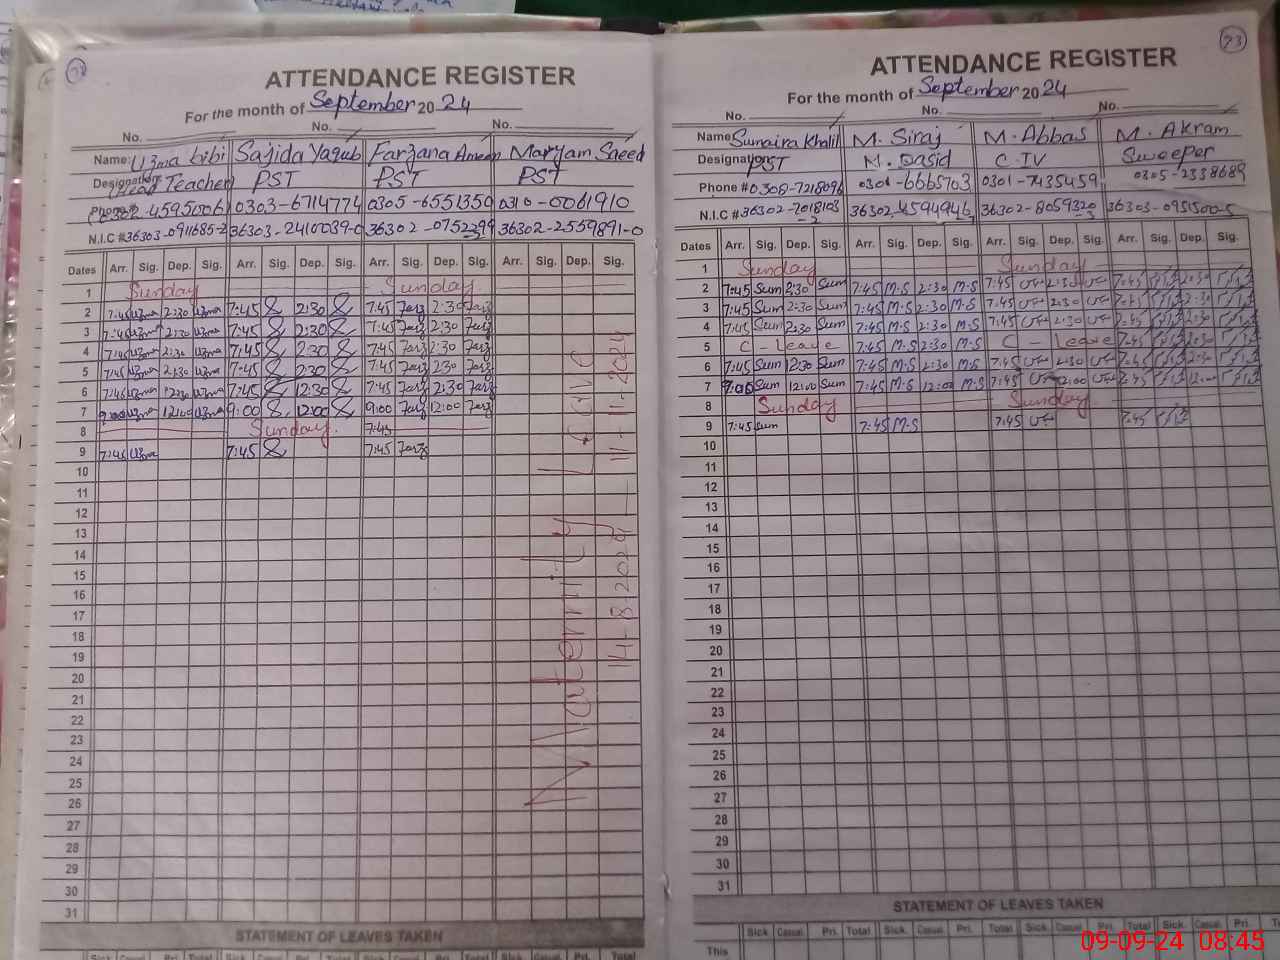 72
ATTENDANCE REGISTER
For the month of September 2024
No. No. No.
Name: Uzma bibi Sajida Yaqub Farzana Ameen Maryam Saeed
Designation: Head Teacher PST PST PST
0303-6714774 0305-6551350 0310-0061910
N.I.C # 36303-0911685-2 36303-2410039-0 36302-0752399 36302-2559891-0
Dates Arr. Sig. Dep. Sig. Arr. Sig. Dep. Sig. Arr. Sig. Dep. Sig. Arr. Sig. Dep. Sig.
1 Sunday Sunday
2 7:45 Uzma 2:30 Uzma 7:45 2:30 7:45 Farz 2:30 Farz
3 7:45 Uzma 2:30 Uzma 7:45 2:30 7:45 Farz 2:30 Farz
4 7:45 Uzma 2:30 Uzma 7:45 2:30 7:45 Farz 2:30 Farz
5 7:45 Uzma 2:30 Uzma 7:45 2:30 7:45 Farz 2:30 Farz
6 7:45 Uzma 12:30 Uzma 7:45 12:30 7:45 Farz 12:30 Farz
7 9:00 Uzma 12:00 Uzma 9:00 12:00 9:00 Farz 12:00 Farz
8 Sunday. 7:45
9 7:45 Uzma 7:45 7:45 Farz
10
11
12
13
14
15
16
17
18
19
20
21
22
23
24
25
26
27
28
29
30
31
Maternity Leave
14-8-2024 — 11-11-2024
STATEMENT OF LEAVES TAKEN
Sick Casual Pri. Total Sick Casual Pri. Total Sick Casual Pri. Total Sick Total
73
ATTENDANCE REGISTER
For the month of September 2024
No. No. No.
Name Sumaira Khalil M. Siraj M. Abbas M. Akram
Designation PST M. Qasid C.IV Sweeper
Phone # 0308-7218096 0301-6665703 0301-7435459 0305-2338689
N.I.C # 36302-7018103-2 36302-4594946 36302-8059320-3 36303-0951500-5
Dates Arr. Sig. Dep. Sig. Arr. Sig. Dep. Sig. Arr. Sig. Dep. Sig. Arr. Sig. Dep. Sig.
1 Sunday Sunday
2 7:45 Sum 2:30 Sum 7:45 M.S 2:30 M.S 7:45 2:30 7:45 2:30
3 7:45 Sum 2:30 Sum 7:45 M.S 2:30 M.S 7:45 2:30 7:45 2:30
4 7:45 Sum 2:30 Sum 7:45 M.S 2:30 M.S 7:45 2:30 7:45 2:30
5 C - Leave 7:45 M.S 2:30 M.S C - Leave 7:45 2:30
6 7:45 Sum 12:30 Sum 7:45 M.S 12:30 M.S 7:45 12:30 7:45
7 9:00 Sum 12:00 Sum 7:45 M.S 12:00 M.S 7:45 12:00 7:45 12:00
8 Sunday Sunday
9 7:45 Sum 7:45 M.S 7:45 7:45
10
11
12
13
14
15
16
17
18
19
20
21
22
23
24
25
26
27
28
29
30
31
STATEMENT OF LEAVES TAKEN
Sick Casual Pri. Total Sick Casual Pri. Total Sick Casual Pri. Total Sick Casual Pri.
This
09-09-24 08:45